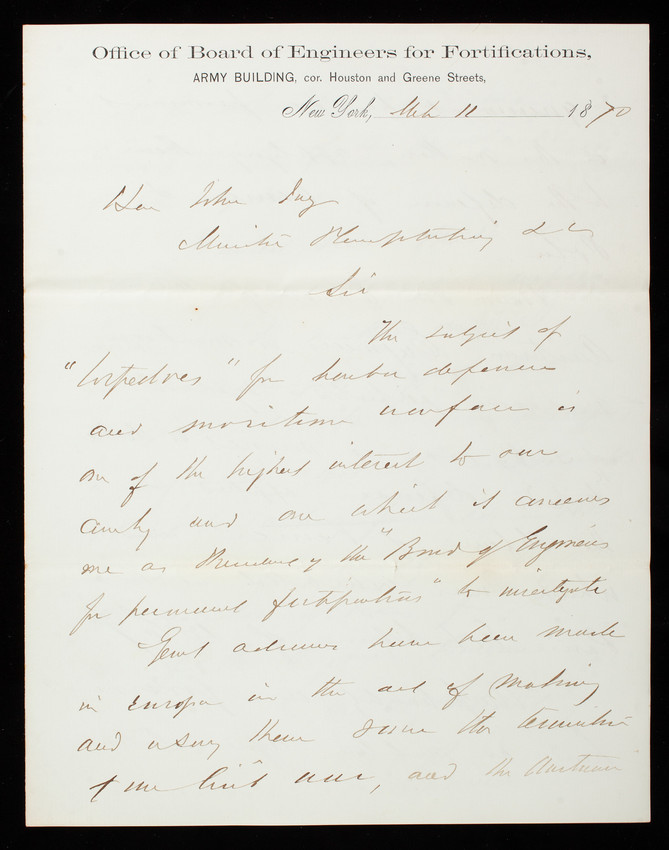 Office of Board of Engineers for Fortifications,
ARMY BUILDING, cor. Houston and Greene Streets,
New York, Mch 11 1870
Hon John Jay
Minister Plenipotentiary &c
Sir
The subject of
"torpedoes" for harbor defence
and maritime warfare is
one of the highest interest to our
country and one which it concerns
me as President of the "Board of Engineers
for permanent fortifications" to investigate
Great advances have been made
in Europe in the art of making
and using them since the termination
of our civil war, and the Austrian